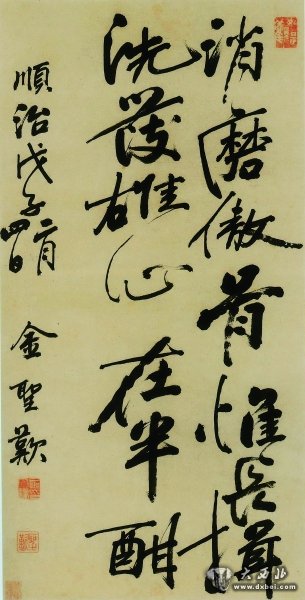 消磨傲骨惟長揖
洗發雄心在半酣
順治戊子二月四日 金聖歎
大西北
dxbei.com